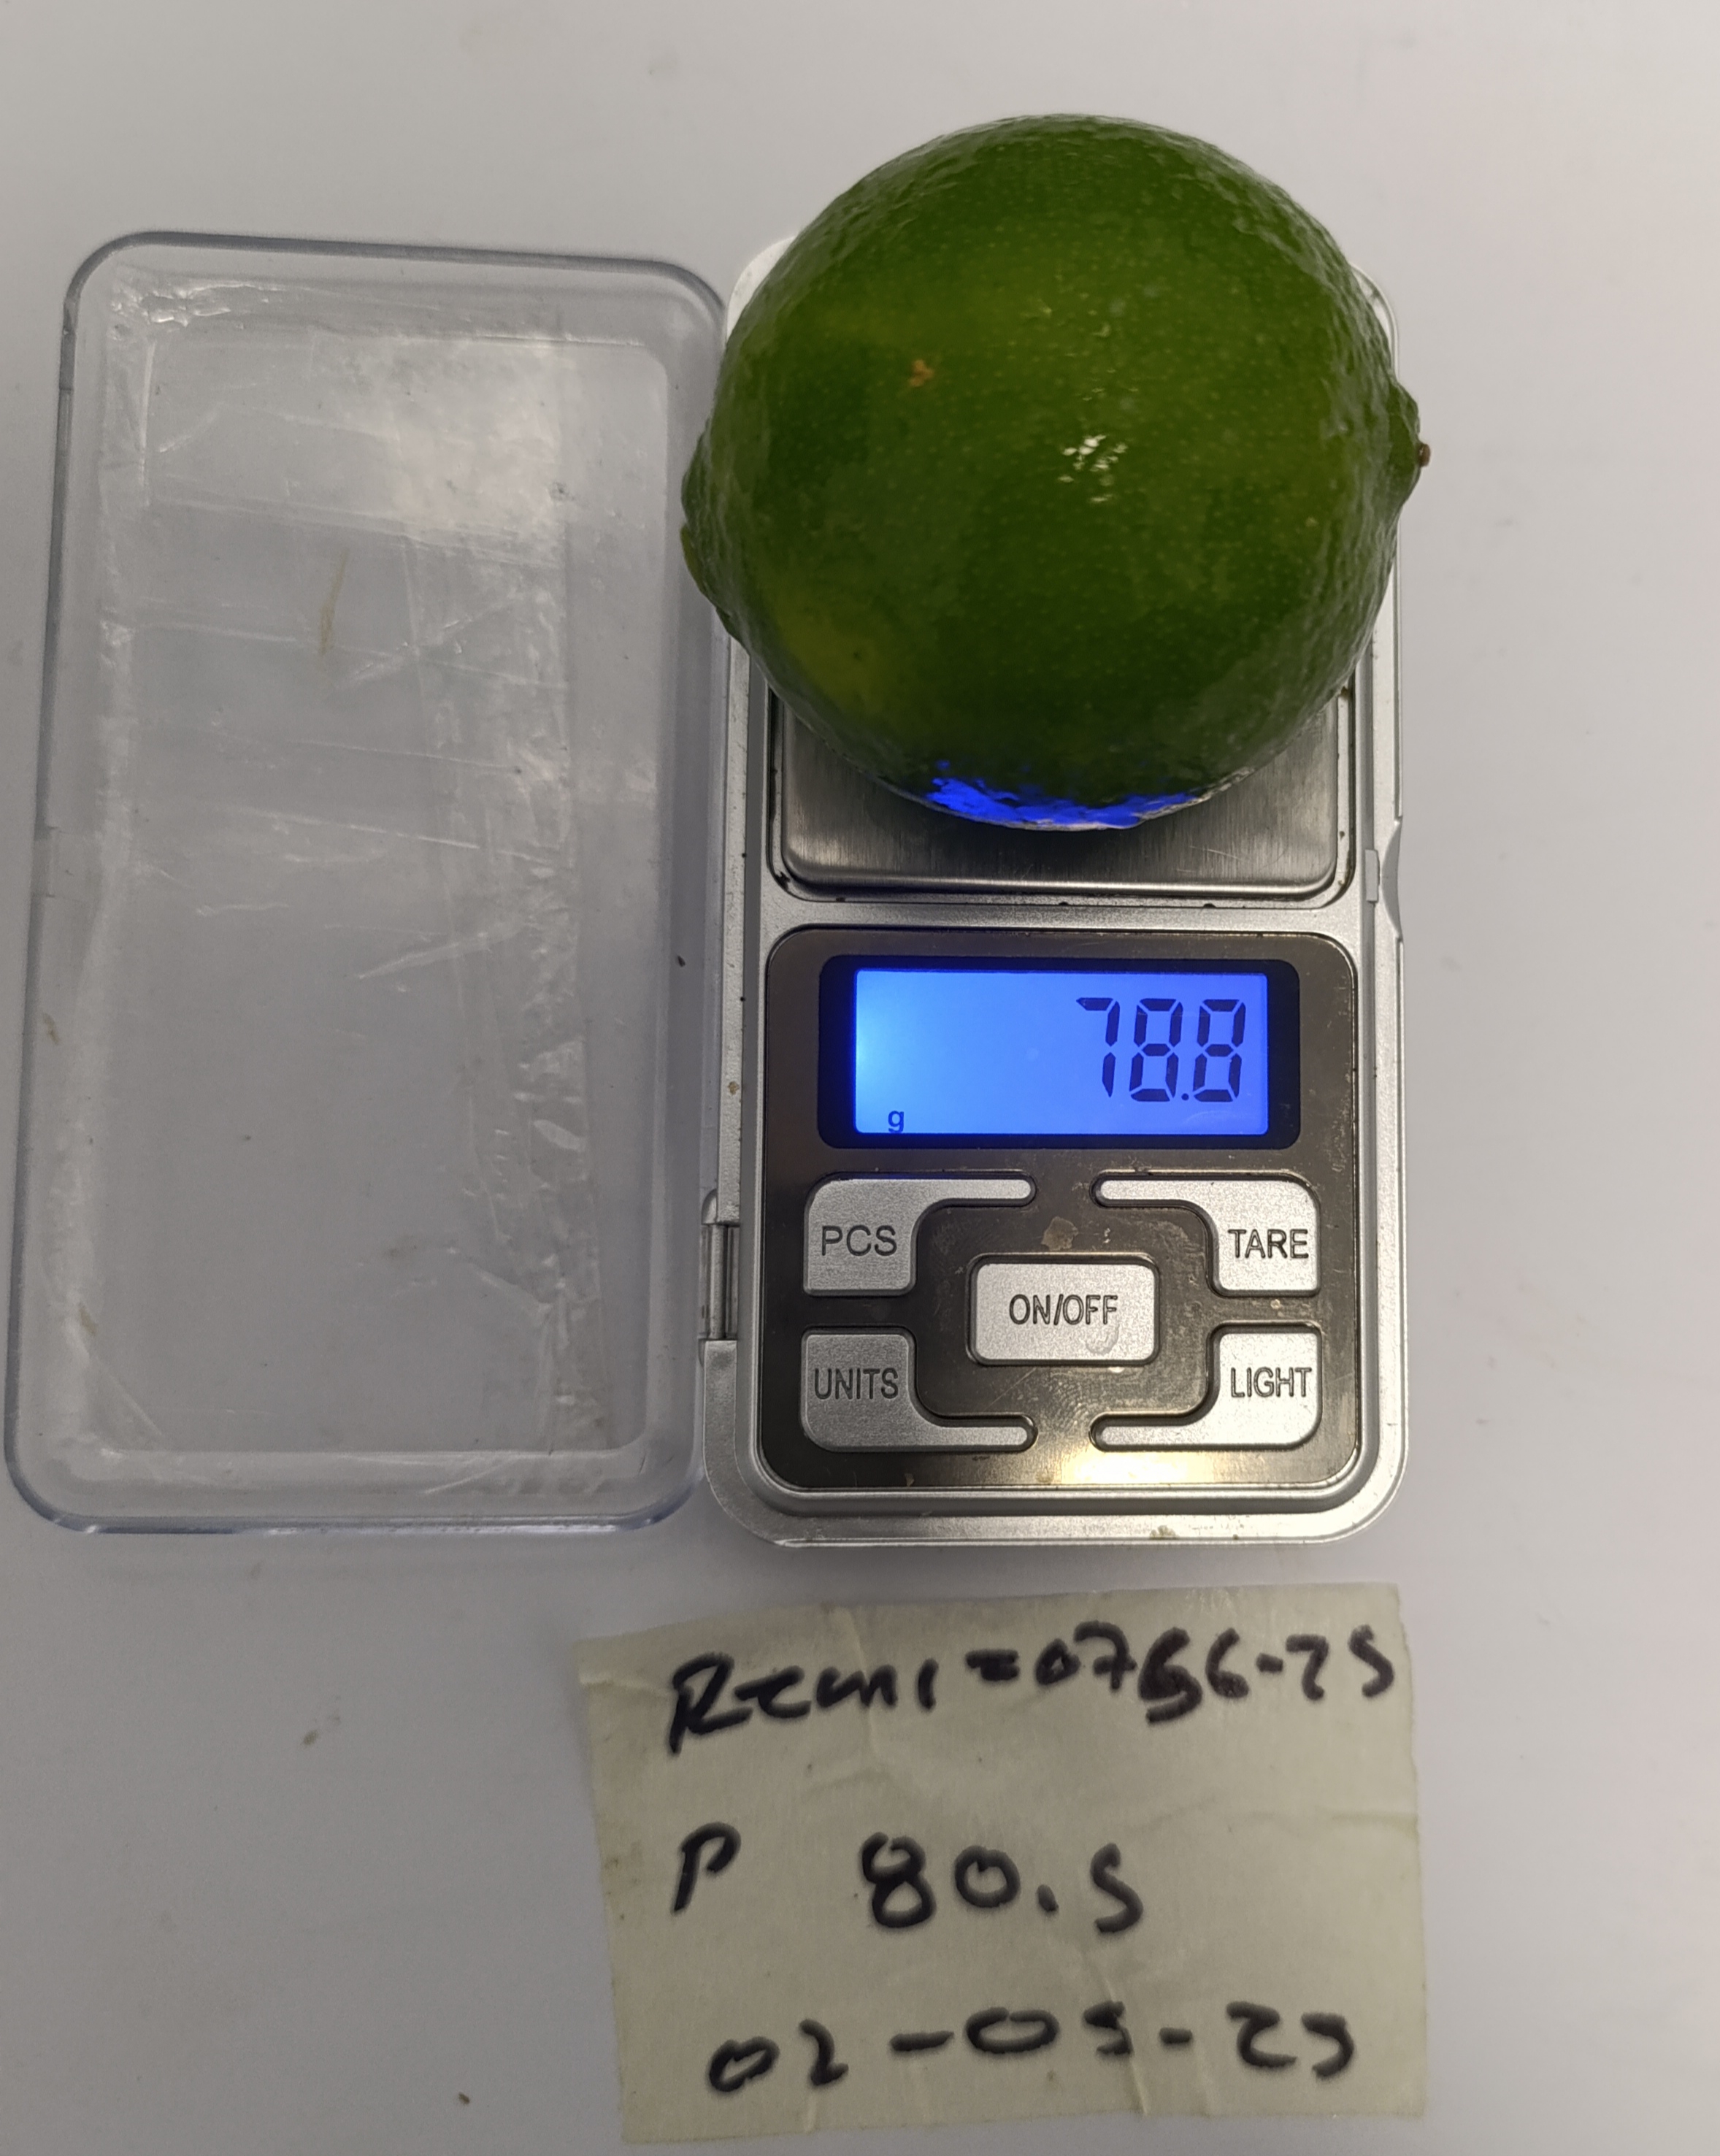 78.8
g
PCS
TARE
ON/OFF
UNITS
LIGHT
Remi=0766-25
P 80.5
02-05-25